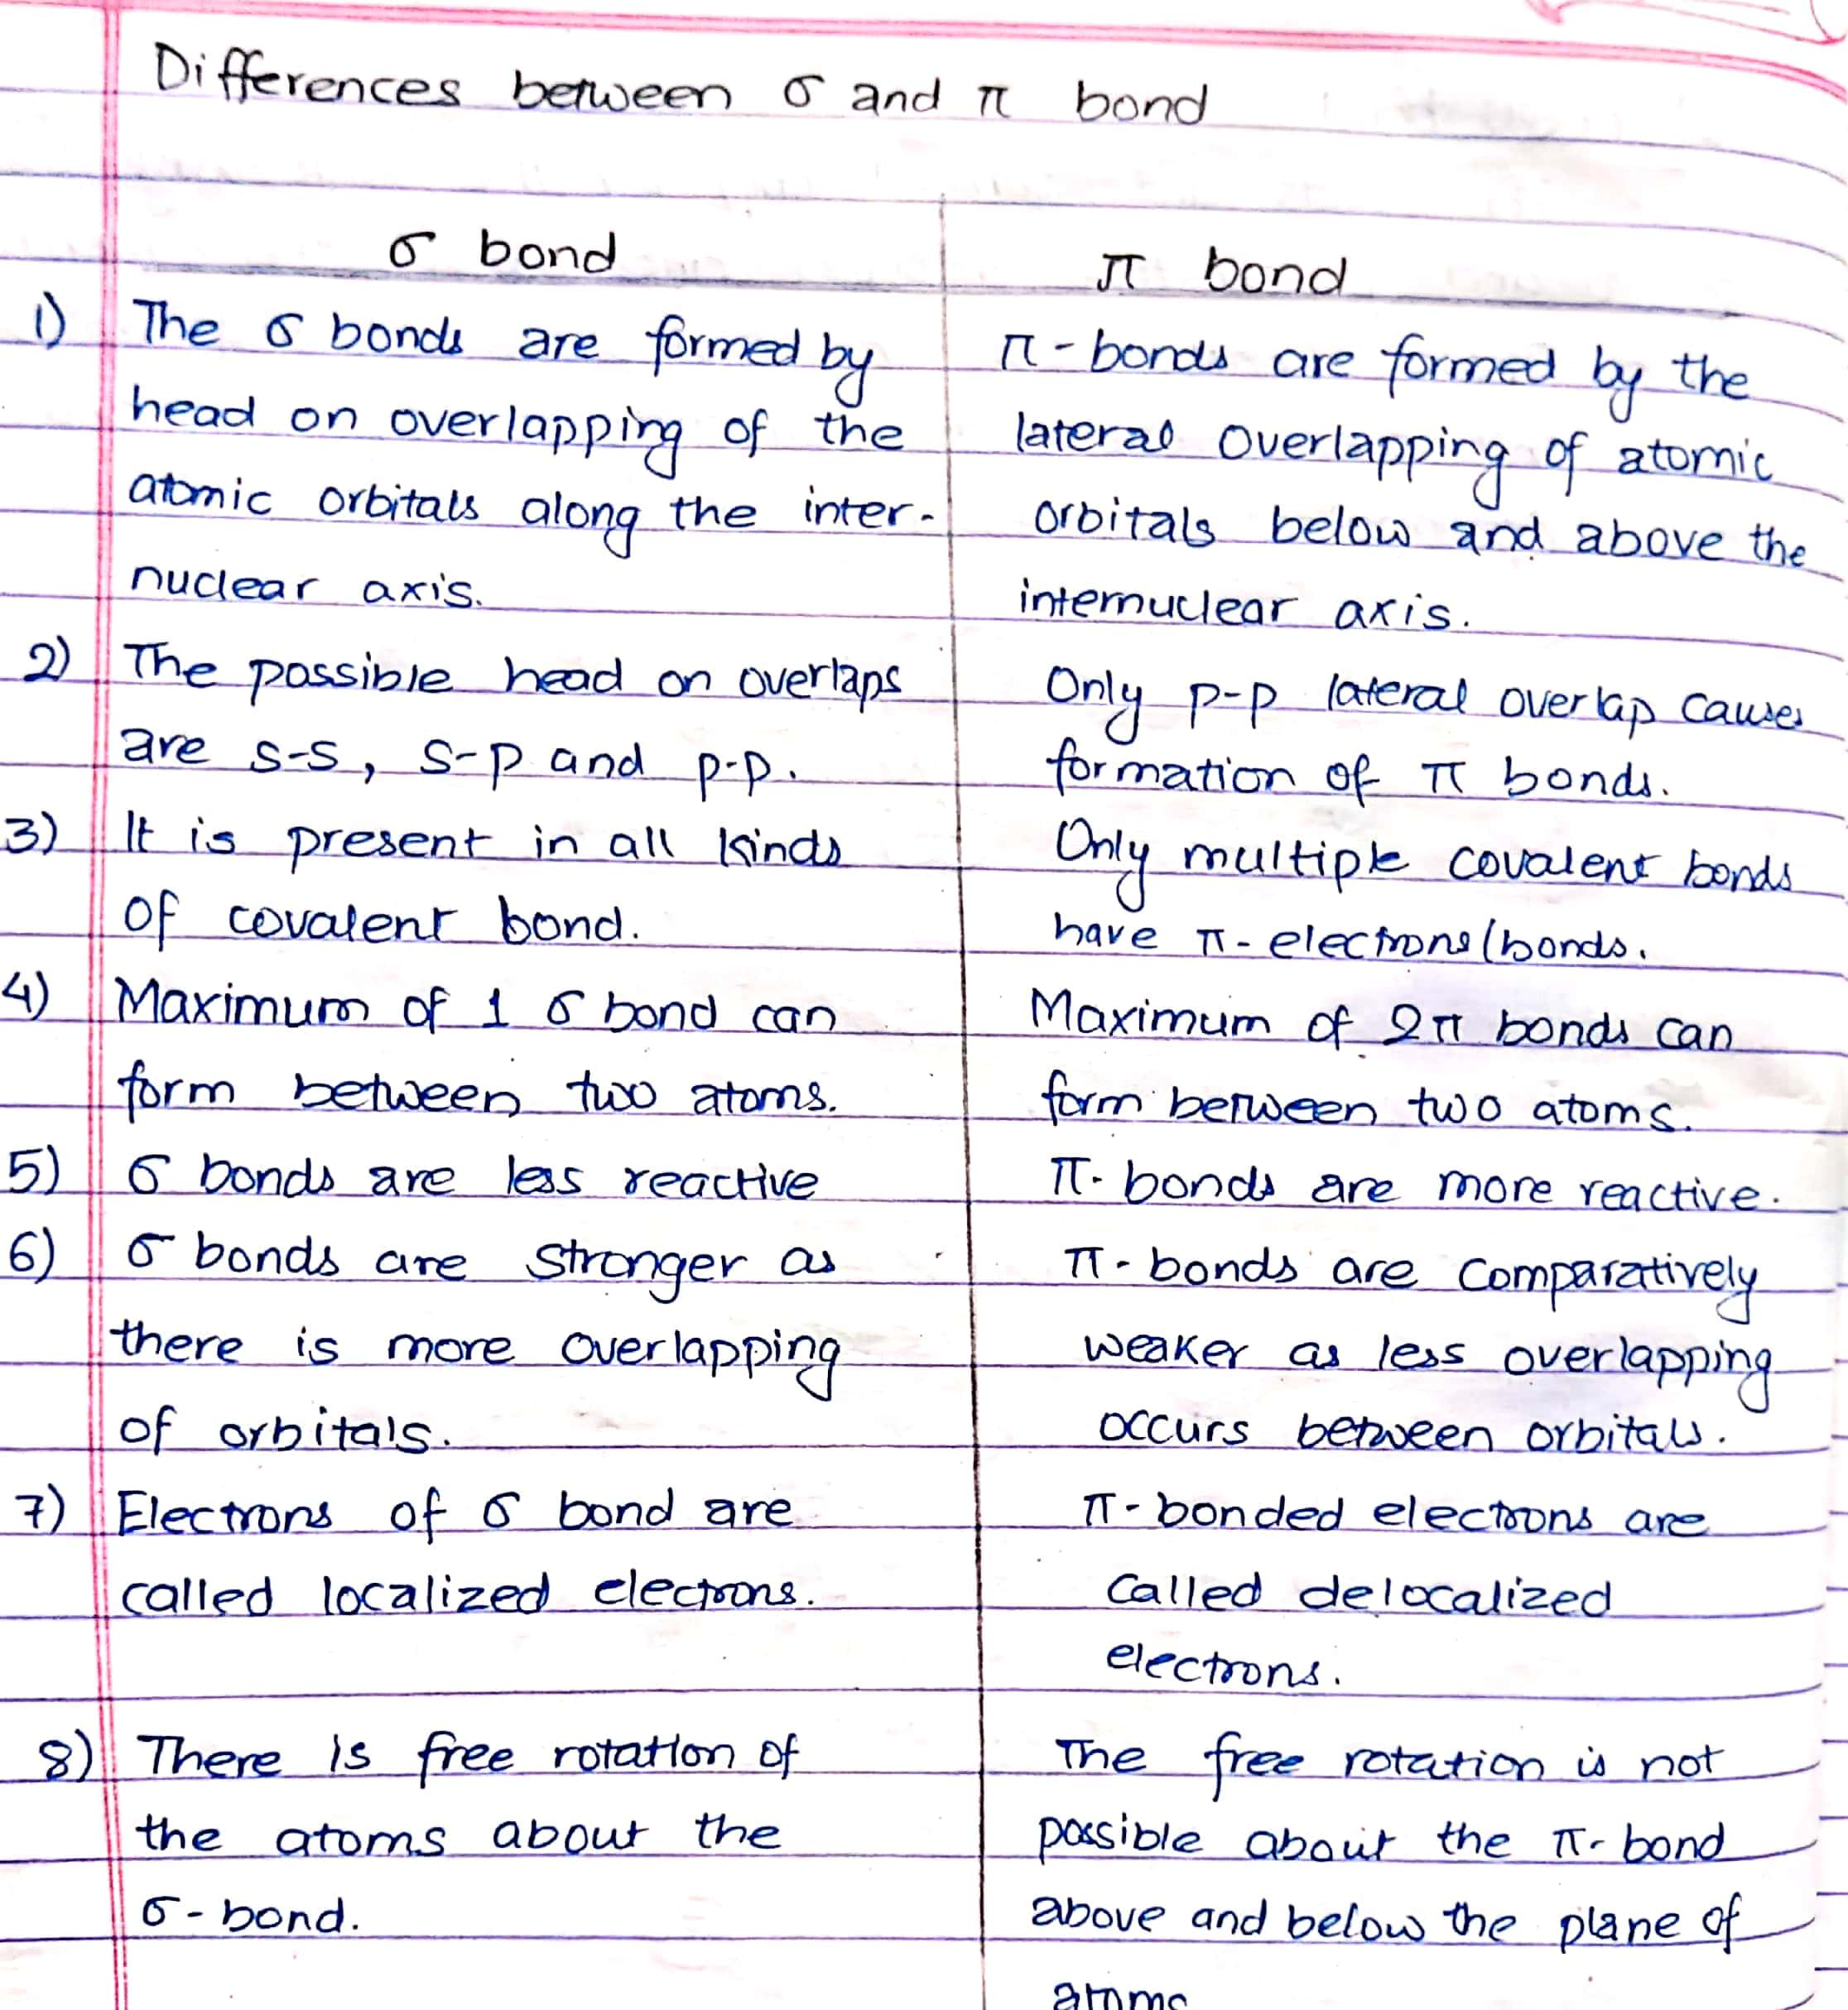 Differences between σ and π bond
σ bond
π bond
1) The σ bonds are formed by
head on overlapping of the
atomic orbitals along the inter-
nuclear axis.
π-bonds are formed by the
lateral overlapping of atomic
orbitals below and above the
internuclear axis.
2) The possible head on overlaps
are s-s, s-p and p-p.
Only p-p lateral overlap causes
formation of π bonds.
3) It is present in all kinds
of covalent bond.
Only multiple covalent bonds
have π-electrons/bonds.
4) Maximum of 1 σ bond can
form between two atoms.
Maximum of 2π bonds can
form between two atoms.
5) σ bonds are less reactive
π-bonds are more reactive.
6) σ bonds are stronger as
there is more overlapping
of orbitals.
π-bonds are comparatively
weaker as less overlapping
occurs between orbitals.
7) Electrons of σ bond are
called localized electrons.
π-bonded electrons are
called delocalized
electrons.
8) There is free rotation of
the atoms about the
σ-bond.
The free rotation is not
possible about the π-bond
above and below the plane of
atoms